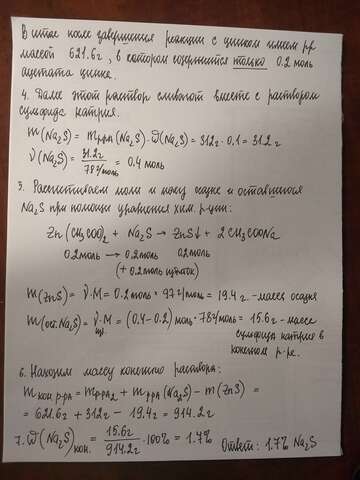 В итоге после завершения реакции с цинком имеем р-р
массой 621.6г, в котором содержится только 0.2 моль
ацетата цинка.
4. Далее этот раствор сливают вместе с раствором
сульфида натрия.
m(Na₂S) = mр-ра(Na₂S)·ω(Na₂S) = 312г · 0.1 = 31.2г
ν(Na₂S) = 31.2г / 78г/моль = 0.4 моль
5. Рассчитываем моли и массу осадка и оставшегося
Na₂S при помощи уравнения хим. р-ции:
Zn(CH₃COO)₂ + Na₂S → ZnS↓ + 2CH₃COONa
0.2моль → 0.2моль 0.2моль
(+0.2моль избыток)
m(ZnS) = ν·M = 0.2моль · 97г/моль = 19.4г. - масса осадка
m(ост.Na₂S) = ν·M = (0.4-0.2)моль·78г/моль = 15.6г - масса
сульфида натрия в
конечном р-ре.
6. Находим массу конечного раствора:
mкон р-ра = mр-ра2 + mр-ра(Na₂S) - m(ZnS) =
= 621.6г + 312г - 19.4г = 914.2г
7. ω(Na₂S)кон. = 15.6г / 914.2г · 100% = 1.7% Ответ: 1.7% Na₂S